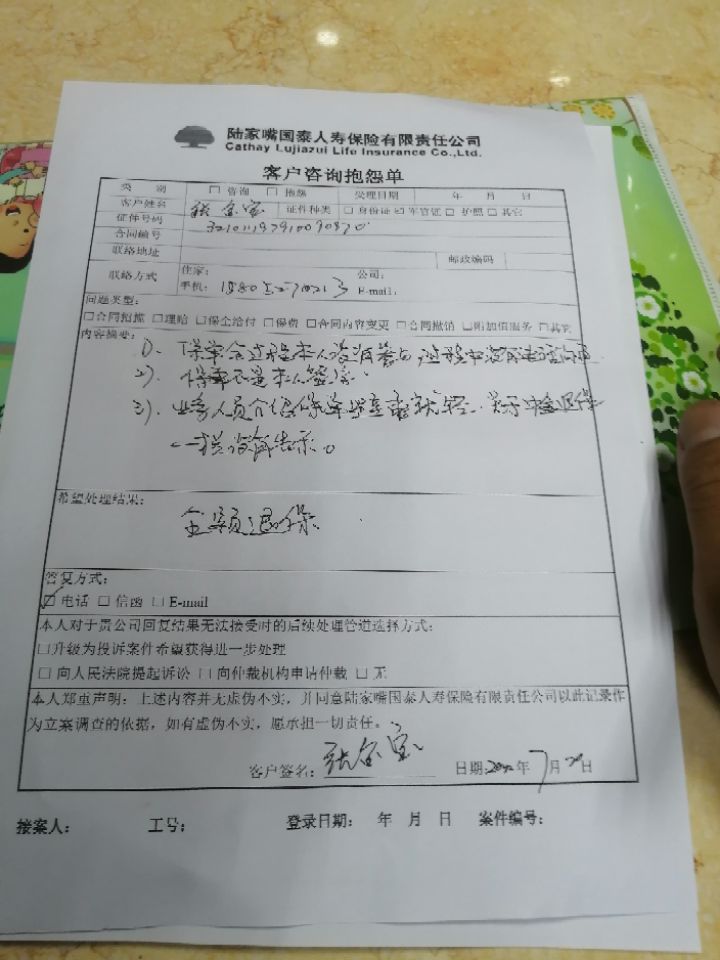 陆家嘴国泰人寿保险有限责任公司
Cathay Lujiazui Life Insurance Co.,Ltd.
客户咨询抱怨单
类 别 □ 咨询 □ 抱怨 受理日期 年 月 日
客户姓名 张金宝 证件种类 □ 身份证 □ 军官证 □ 护照 □ 其它
证件号码
合同编号
联络地址 邮政编码
联络方式 住家: 公司:
手机: E-mail:
问题类型:
□合同招揽 □理赔 □保全给付 □保费 □合同内容变更 □合同撤销 □附加值服务 □其它
内容摘要:
1)、保单全过程本人没有参与
2)、保单不是本人签字
3)、业务人员介绍保单 关于中途退保
一栏没有告示。
希望处理结果:
全额退保.
答复方式:
☑ 电话 □ 信函 □ E-mail
本人对于贵公司回复结果无法接受时的后续处理管道选择方式:
□升级为投诉案件希望获得进一步处理
□ 向人民法院提起诉讼 □ 向仲裁机构申请仲裁 □ 无
本人郑重声明:上述内容并无虚伪不实,并同意陆家嘴国泰人寿保险有限责任公司以此记录作
为立案调查的依据,如有虚伪不实,愿承担一切责任。
客户签名: 张金宝 日期: 年 7 月 日
接案人: 工号: 登录日期: 年 月 日 案件编号: